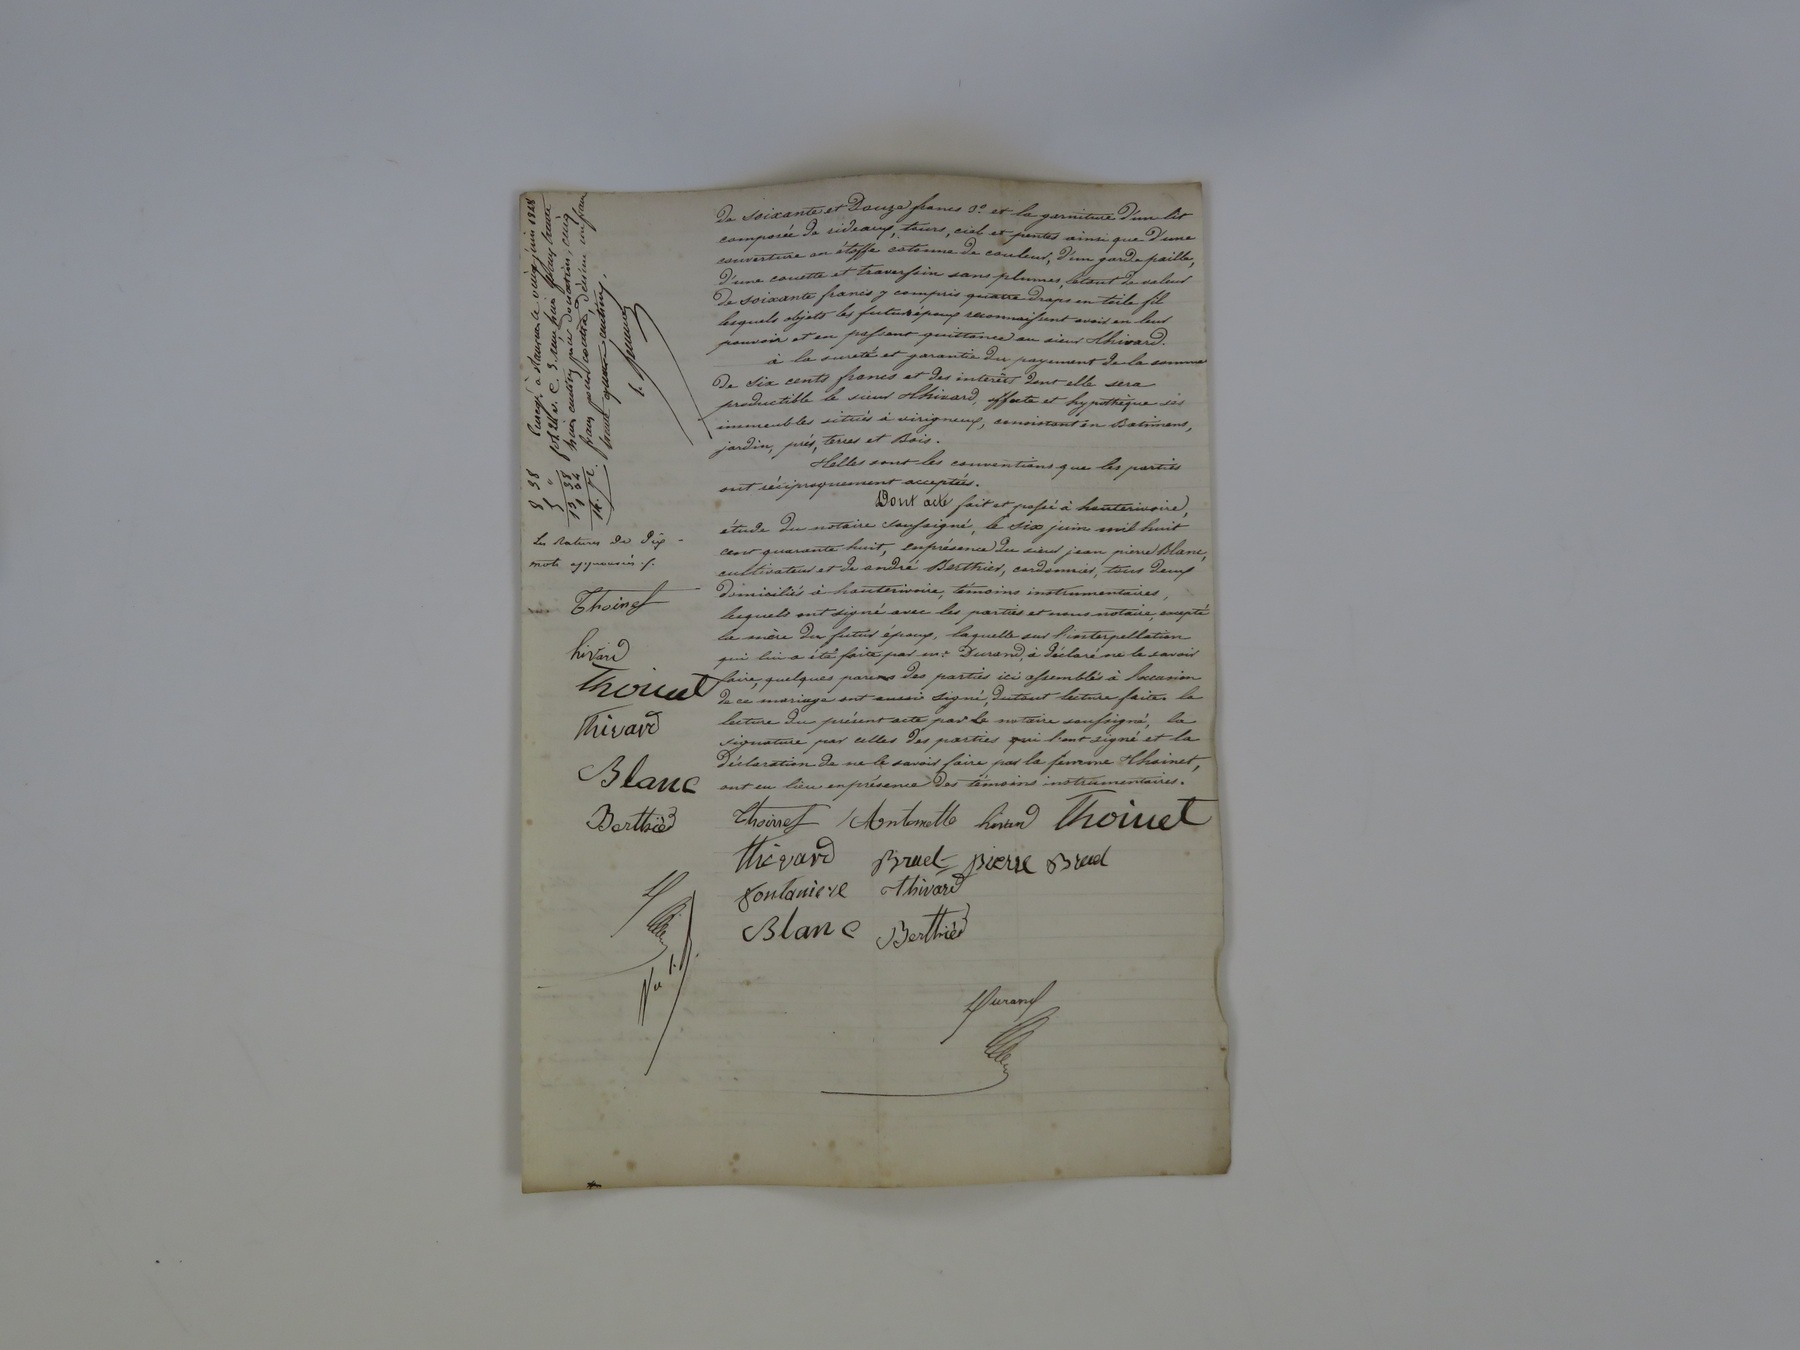 de soixante et Douze francs 3° et la garniture d'un lit
composée de rideaux, tours, ciel et pentes ainsi que d'une
couverture en étoffe cotonne de couleur, d'un garde paille,
d'une couette et traversin sans plumes, letout de valeur
de soixante francs y compris quatre draps en toile fil
lesquels objets les futurs époux reconnaissent avoir en leur
pouvoir et en passent quittance au sieur thivard.
à la sureté et garantie du payement de la somme
de Six cents francs et des intérêts dont elle sera
productible le sieur thivard, affecte et hypothèque ses
immeubles situés à virigneux, consistant en Batimens,
jardin, prés, terres et Bois.
telles sont les conventions que les parties
ont réciproquement acceptées.
Dont acte fait et passé à hauterivoire,
étude du notaire soussigné, le six juin mil huit
cent quarante huit, enprésence du sieur jean pierre Blanc,
cultivateur et de andré Berthier, cordonnier, tous deux
domiciliés à hauterivoire, témoins instrumentaires,
lesquels ont signé avec les parties et nous notaire, excepté
la mère du futur époux, laquelle sur l'interpellation
qui lui a été faite par me Durand, a déclaré ne le savoir
faire, quelques parens des parties ici assemblés à l'occasion
de ce mariage ont aussi signé, dutout lecture faite. la
lecture du présent acte par le notaire soussigné, la
signature par celles des parties qui l'ont signé et la
déclaration de ne le savoir faire par la femme thoinet,
ont eu lieu enprésence des témoins instrumentaires.
Thoinet Antoinette hivard Thoinet
thivard Bruel pierre Bruel
fontaniere thivard
Blanc Berthier
Durand
les ratures de dix
mots approuvés
Thoinet
hivard
Thoinet
thivard
Blanc
Berthier